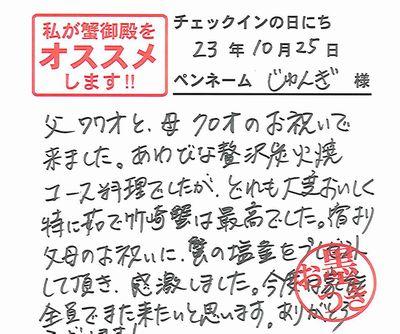 私が蟹御殿を
オススメ
します!!
チェックインの日にち
23年10月25日
ペンネーム じゅんぎ 様
父ワワオと、母クロオのお祝いで
来ました。あわびな贅沢炭火焼
コース料理でしたが、どれも大変おいしく
特に茹で竹崎蟹は最高でした。宿より
父母のお祝いに、蟹の塩釜をプレゼント
して頂き、感激しました。今度は家族
全員でまた来たいと思います。ありがとう
ございます!